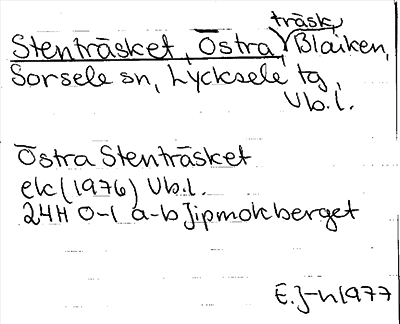 träsk,
Stenträsket, Östra, Blaiken,
Sorsele sn, Lycksele tg,
Vb.l.
Östra Stenträsket
ek (1976) Vb.l.
24H 0-1 a-b Jipmokberget
E.J-n 1977